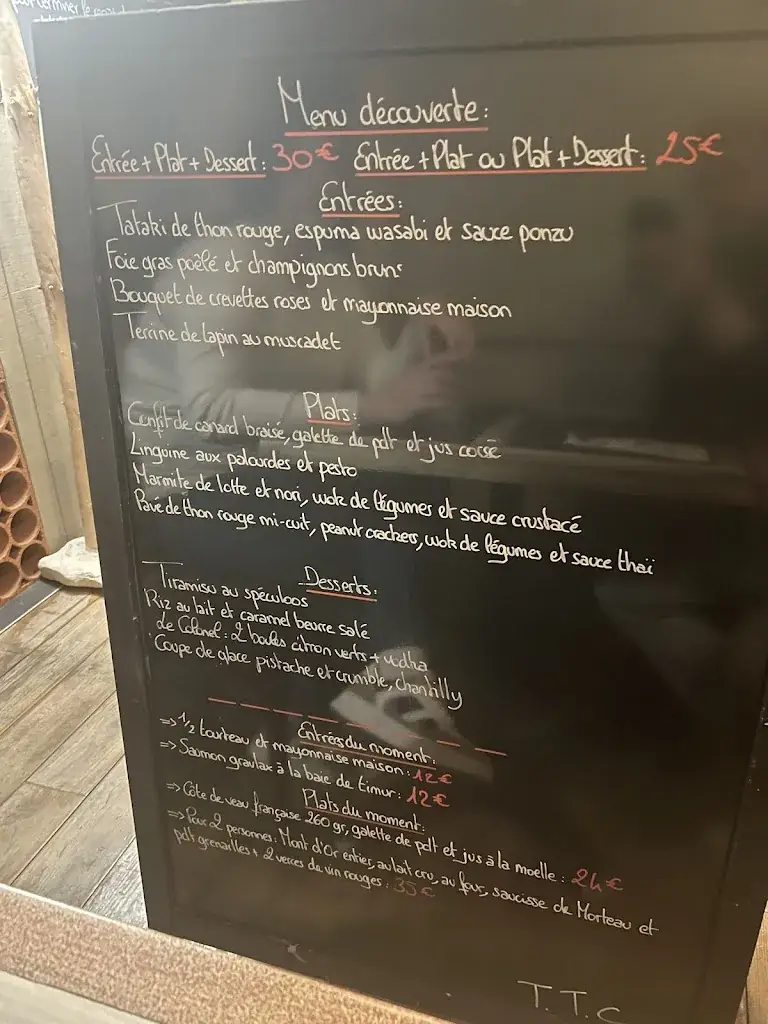 Menu découverte:
Entrée + Plat + Dessert: 30€ Entrée + Plat ou Plat + Dessert: 25€
Entrées:
Tataki de thon rouge, espuma wasabi et sauce ponzu
Foie gras poêlé et champignons bruns
Bouquet de crevettes roses et mayonnaise maison
Terrine de lapin au muscadet
Plats:
Confit de canard braisé, galette de pdt et jus corsé
Linguine aux palourdes et pesto
Marmite de lotte et nori, wok de légumes et sauce crustacé
Pavé de thon rouge mi-cuit, peanut crackers, wok de légumes et sauce thaï
Desserts:
Tiramisu au spéculoos
Riz au lait et caramel beurre salé
Le Colonel: 2 boules citron verts + vodka
Coupe de glace pistache et crumble, chantilly
Entrées du moment:
=> 1/2 tourteau et mayonnaise maison: 12€
=> Saumon gravlax à la baie de timur: 12€
Plats du moment:
=> Côte de veau française 260 gr, galette de pdt et jus à la moelle: 24€
=> Pour 2 personnes: Mont d'Or entier, au lait cru, au four, saucisse de Morteau et
pdt grenailles + 2 verres de vin rouges: 35€
T.T.C